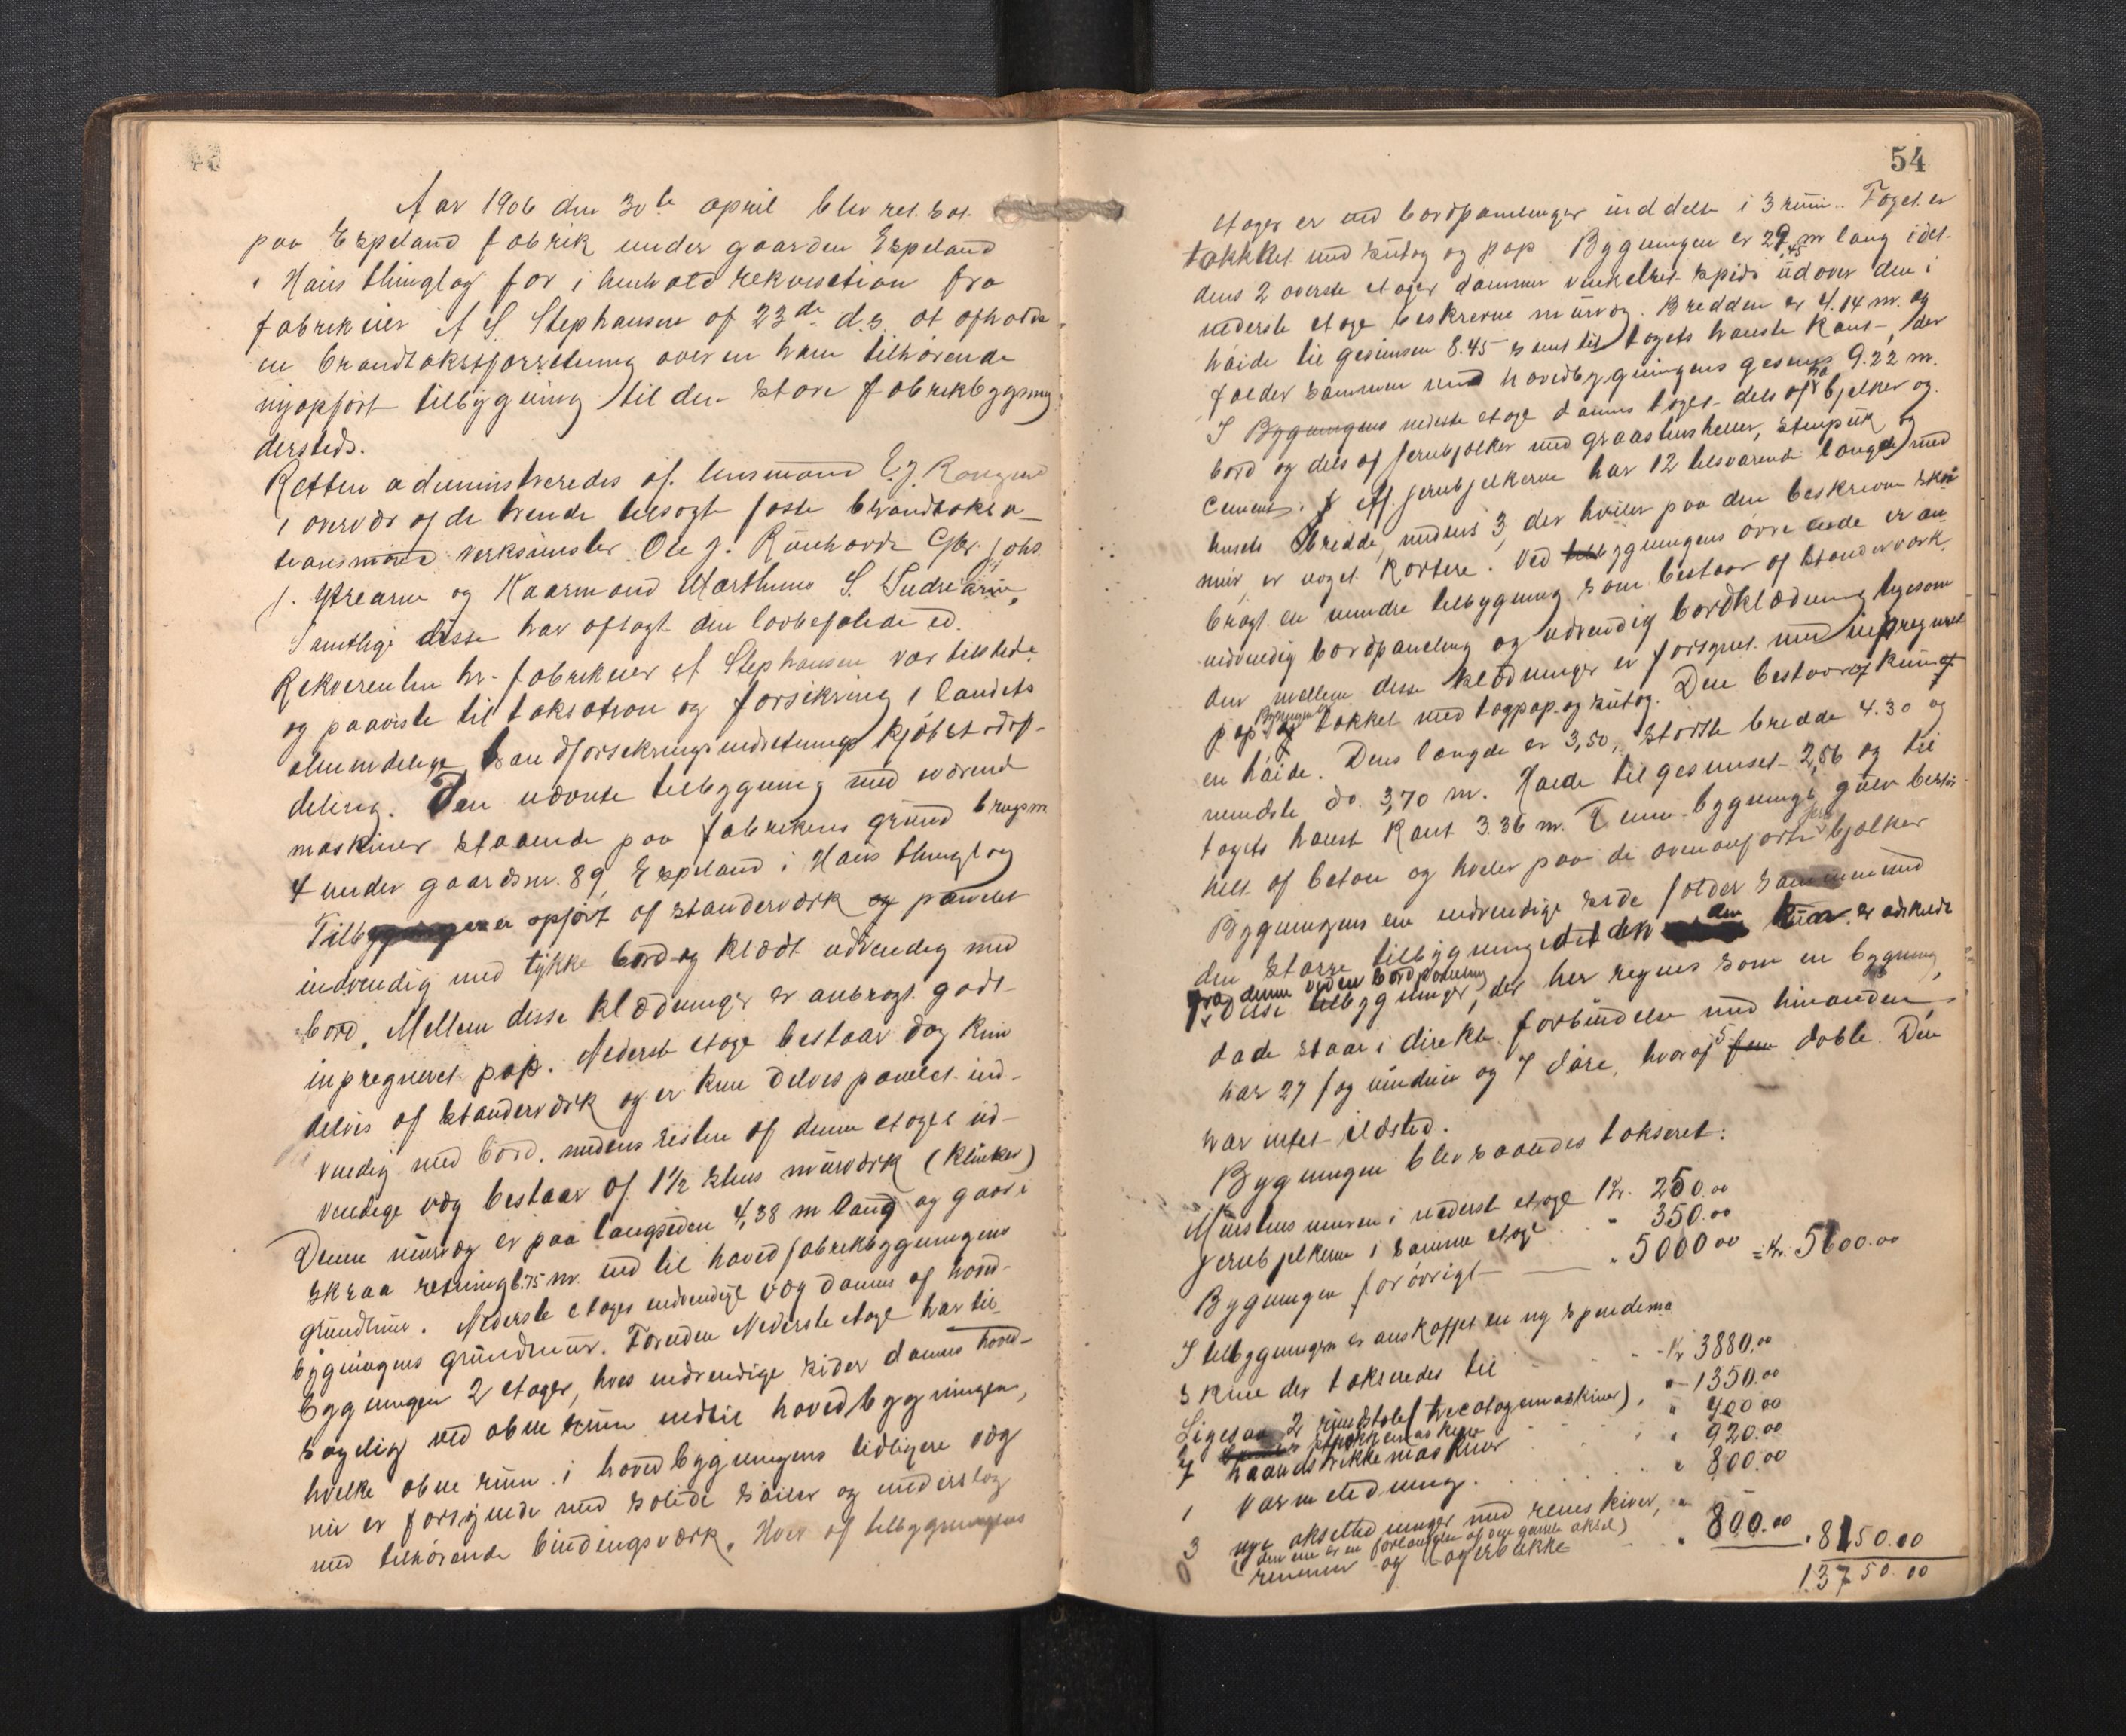 Aar 1906 den 30te april blev ret. sat.
paa Espeland fabrik under gaarden Espeland
i Haus thinglag for i henhold rekvisition fra
fabrikeier A S Stephansen af 23de d.s. at afholde
en brandtakstforretning over en ham tilhørende
nyopført tilbygning til den store fabrikbygning
dersteds.
Retten administreredes af lensmand
i overvær af de trende tilsagte faste brandtaksa-
tionsmænd verksmester Ole J. Ruuhovde Gbr. Johs.
J. Ytrearne og Kaarmand Marthinus S. Indrearne.
Samtlige disse har aflagt den lovbefalede ed.
Rekverenten hr. fabrikeier A Stephansen var tilstede
og paaviste til taksation og forsikring i landets
almindelige brandforsikringsindretnings kjøbstadaf-
deling. Den nævnte tilbygning med værende
maskiner staaende paa fabrikens grund brugsnr
4 under gaardsnr. 89, Espeland i Haus thinglag
Tilbygningen er opført af standerværk og panelet
indvendig med tykke bord og klædt udvendig med
bord. Mellem disse klædninger er anbragt godt
inpregneret pap. Nederste etage bestaar dog kun
delvis af standerværk og er kun delvis panelet ind-
vendig med bord, medens resten af denne etages ud-
vendige væg bestaar af 1½ stens murværk (Klinker)
Denne murvæg er paa langsiden 4,38 m lang og gaar i
skraa retning 6.75 m. ind til hovedfabrikbygningens
grundmur. Nederste etages indvendige væg dannes af hoved-
bygningens grundmur. Foruden Nederste etage har til-
bygningen 2 etager, hvis indvendige sider dannes hoved-
sagelig ved abne rum indtil hovedbygningen,
hvilke abne rum i hovedbygningens tidligere væg
nu er forsynede med solide søiler og underslag
med tilhørende bindingsværk. Hver af tilbygningens
54
etager er ved bordpanelinger inddelt i 3 rum. Taget er
tækket med sutag og pap. Bygningen er 29,45 m lang idet
dens 2 øverste etager danner vinkelret spids udover den i
nederste etage beskrevne murvæg. Bredden er 4.14 m. og
høide til gesimsen 8.45 samt til tagets høieste kant, der
falder sammen med hovedbygningens gesims 9.22 m.
I Bygningens nederste etage dannes taget dels af træbjelker og
bord og dels af jernbjelker med graastensheller, stenpuk og
cement. Af jernbjelkerne har 12 tilsvarende længde med
husets bredde, medens 3, der hviler paa den beskrevne skraa
mur, er noget kortere. Ved bygningens øvre ende er an-
bragt en mindre tilbygning som bestaar af standerværk,
indvendig bordpaneling og udvendig bordklædning ligesom
den mellem disse klædninger er forsynet med inpregneret
pap. Bygningen er tækket med tagpap og sutag. Den bestaar af kun af
en høide. Dens længde er 3,50, største bredde 4.30 og
mindste do. 3,70 m. Høide til gesimset 2,56 og til
tagets høiest kant 3.36 m. Denne bygnings gulv bestaar
helt af beton og hviler paa de ovenanførte jernbjelker
Bygningens ene indvendige side falder sammen med
den større tilbygning idet den kun er adskilt
fra denne ved en bordpaneling
Disse tilbygninger, der her regnes som en bygning,
da de staar i direkte forbindelse med hinanden,
har 27 fag vinduer og 7 døre, hvoraf 5 fem doble. Den
har intet ildsted.
Bygningen blev saaledes takseret:
Murstensmuren i nederst etage Kr. 250.00
Jernbjelkerne i samme etage " 350.00
Bygningen forøvrigt " 5000.00 = Kr. 5600.00
I tilbygningen er anskaffet en ny spindema-
skine der takseredes til Kr 3880.00
Ligesaa 2 rundstole (tricotagemaskiner) " 1350.00
" 400.00
7 haandstrikkemaskiner " 920.00
1 Varmeledning. " 800.00
3 nye akselledninger med remskiver,
(den ene er en forlængelse af den gamle aksel)
remmer og lagerbukke " 800.00 " 8150.00
13750.00